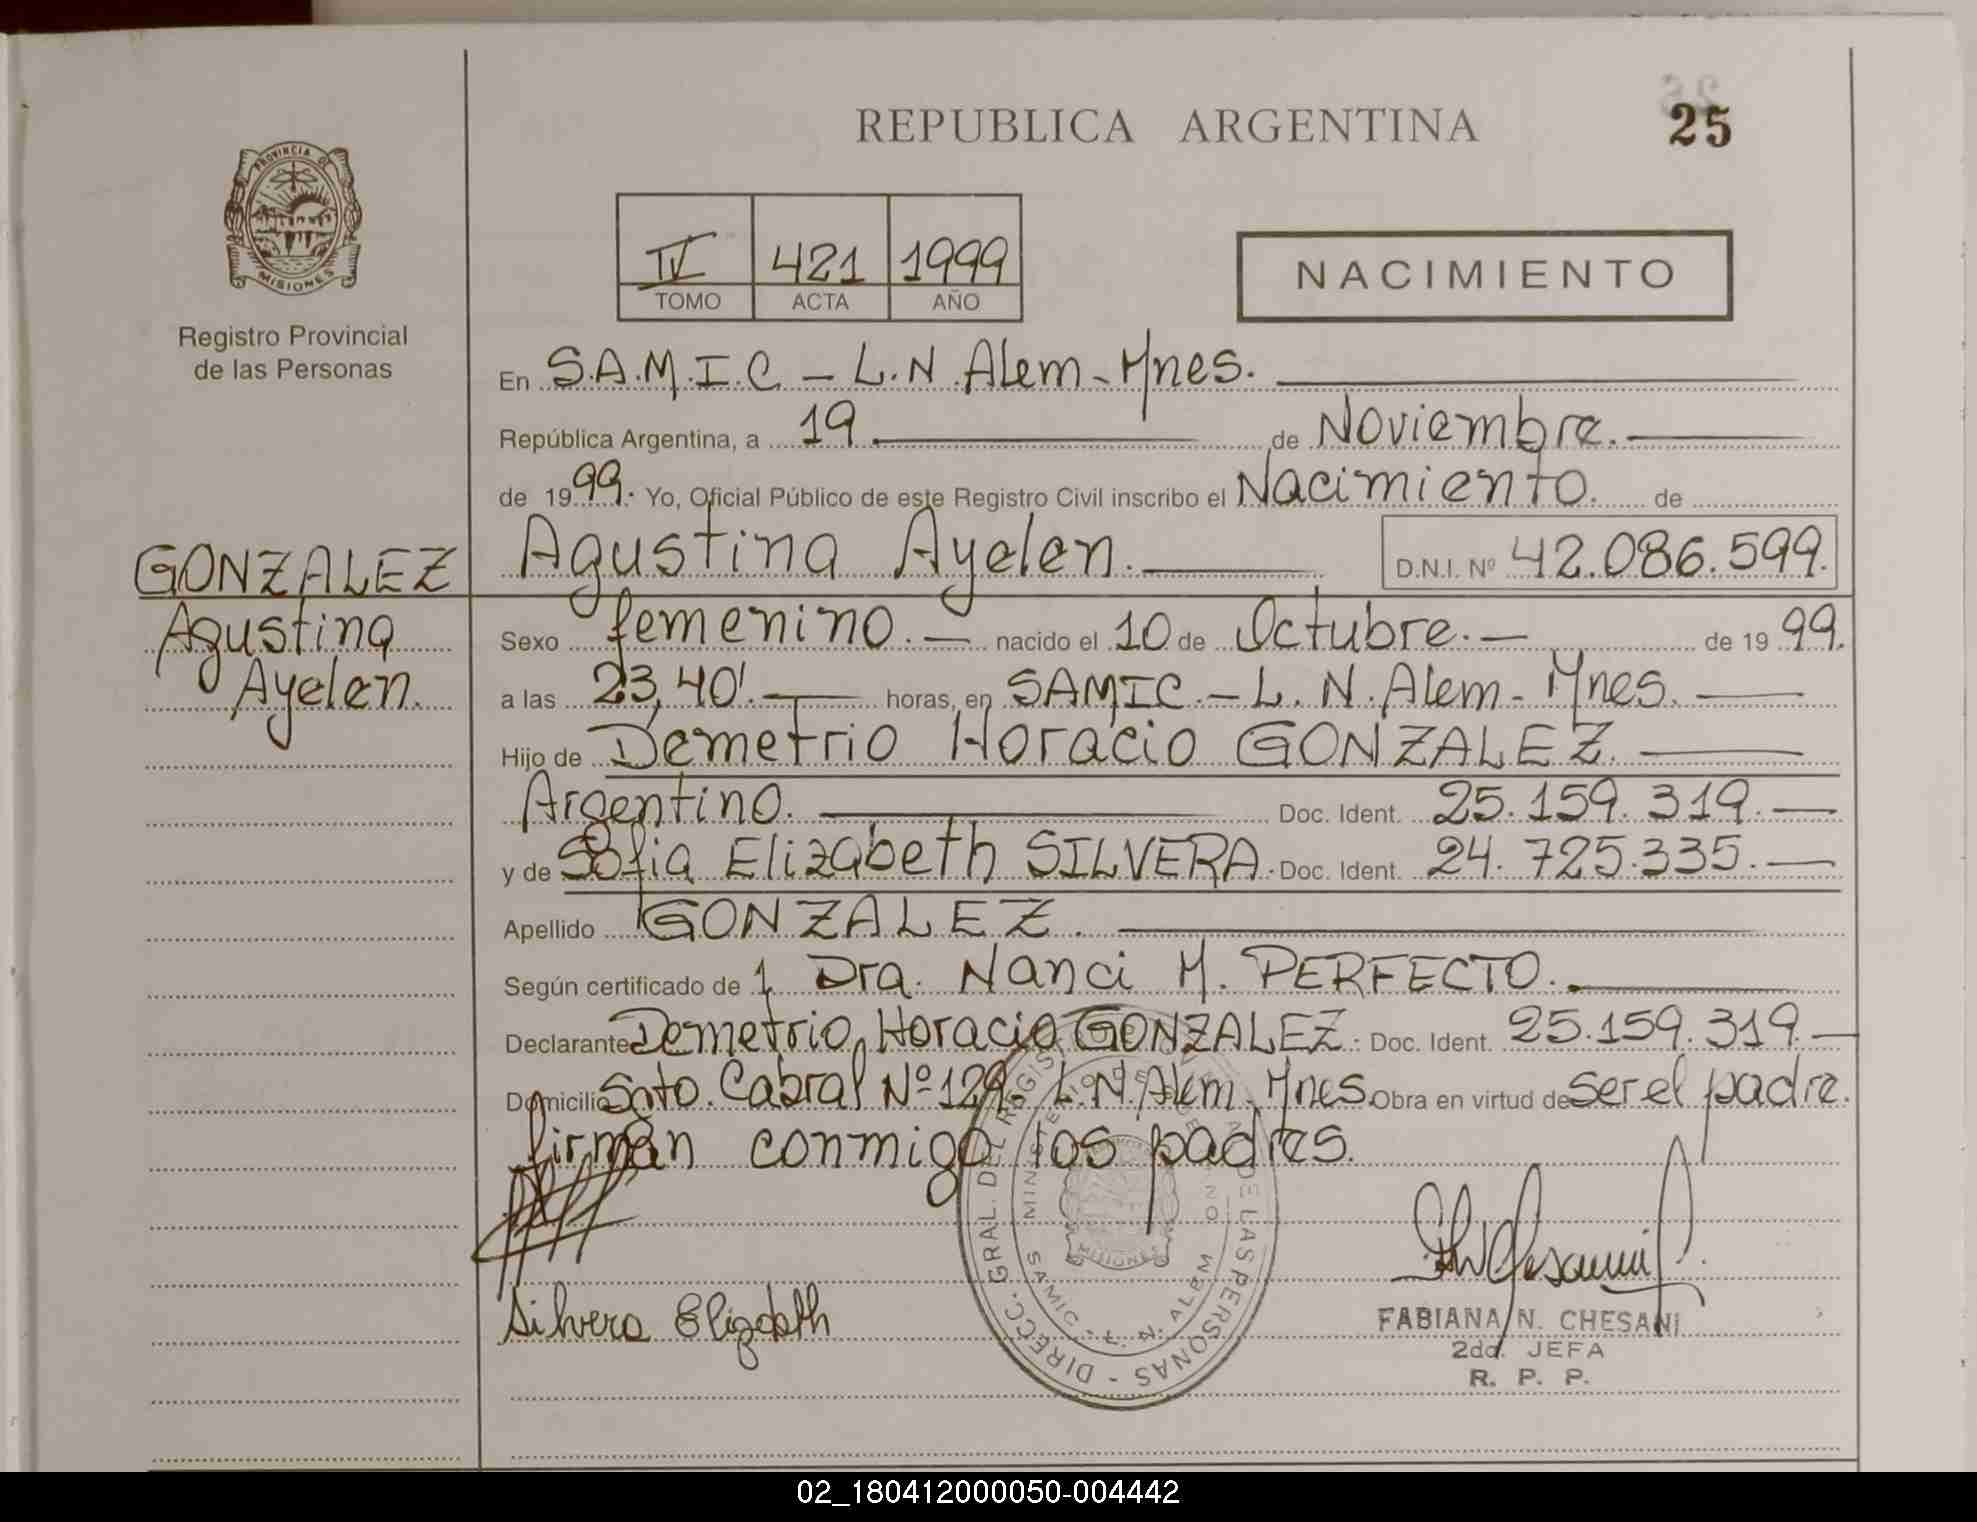 REPUBLICA ARGENTINA
25
PROVINCIA DE
MISIONES
Registro Provincial
de las Personas
IV 421 1999
TOMO ACTA AÑO
NACIMIENTO
En S.A.M.I.C - L.N.Alem - Mnes.
República Argentina, a 19 de Noviembre.
de 1999. Yo, Oficial Público de este Registro Civil inscribo el Nacimiento. de
GONZALEZ
Agustina
Ayelen.
Agustina Ayelen. D.N.I. Nº 42.086.599.
Sexo femenino. - nacido el 10 de Octubre. - de 1999.
a las 23,40'. horas, en SAMIC. - L. N. Alem - Mnes.
Hijo de Demetrio Horacio GONZALEZ.
Argentino. Doc. Ident. 25.159.319.-
y de Sofia Elizabeth SILVERA. Doc. Ident. 24.725.335.-
Apellido GONZALEZ.
Según certificado de 1 Dra. Nanci M. PERFECTO.
Declarante Demetrio Horacio GONZALEZ. Doc. Ident. 25.159.319.-
Domicilio Sgto. Cabral Nº 129, L.N.Alem, Mnes. Obra en virtud de ser el padre.
firman conmigo los padres.
DIRECC. GRAL. DEL REGIS DE LAS PERSONAS
SAMIC - L. N. ALEM
MISIONES
Silvera Elizabeth
FABIANA N. CHESANI
2da. JEFA
R. P. P.
02_180412000050-004442